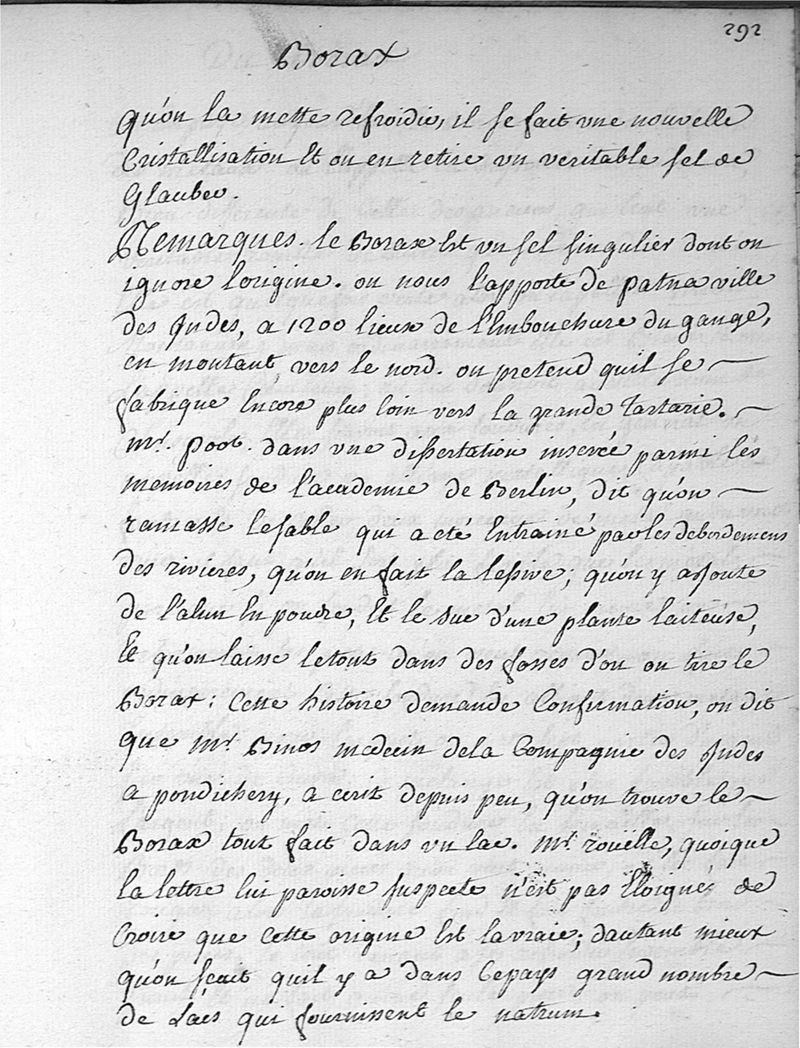 292
Borax
qu'on la mette refroidir, il se fait une nouvelle
Cristallisation Et on en retire un veritable sel de
Glauber
Remarques. le Borax Est un sel singulier dont on
ignore l'origine. on nous l'apporte de patna ville
des Indes, a 1200 lieux de l'Embouchure du gange,
en montant vers le nord. on pretend qu'il se —
fabrique Encore plus loin vers la grande Tartarie. —
Mr. poot. dans une dissertation inserée parmi les
memoires de l'academie de Berlin, dit qu'on —
ramasse le sable qui a eté Entrainé par les debordemens
des rivieres, qu'on en fait la lessive; qu'on y ajoute
de l'alun En poudre, Et le suc d'une plante laiteuse,
Et qu'on laisse le tout dans des fosses d'ou on tire le
Borax: Cette histoire demande Confirmation, on dit
que Mr. Binos medecin de la Compagnie des Indes
a pondichery, a ecrit depuis peu, qu'on trouve le —
Borax tout fait dans un lac. Mr. rouelle, quoique
la lettre lui paroisse suspecte n'est pas Eloigné de
Croire que Cette origine Est la vraie; dautant mieux
qu'on scait qu'il y a dans Ce pays grand nombre —
de Lacs qui fournissent le natrum.